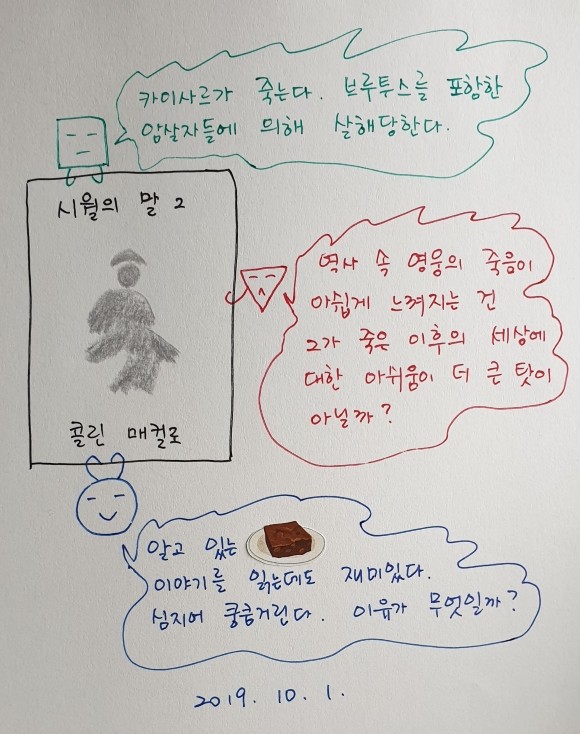 카이사르가 죽는다. 브루투스를 포함한
암살자들에 의해 살해당한다.
시월의 말 2
콜린 매컬로
역사 속 영웅의 죽음이
아쉽게 느껴지는 건
그가 죽은 이후의 세상에
대한 아쉬움이 더 큰 탓이
아닐까?
알고 있는
이야기를 읽는데도 재미있다.
심지어 쿵쿵거린다. 이유가 무엇일까?
2019. 10. 1.